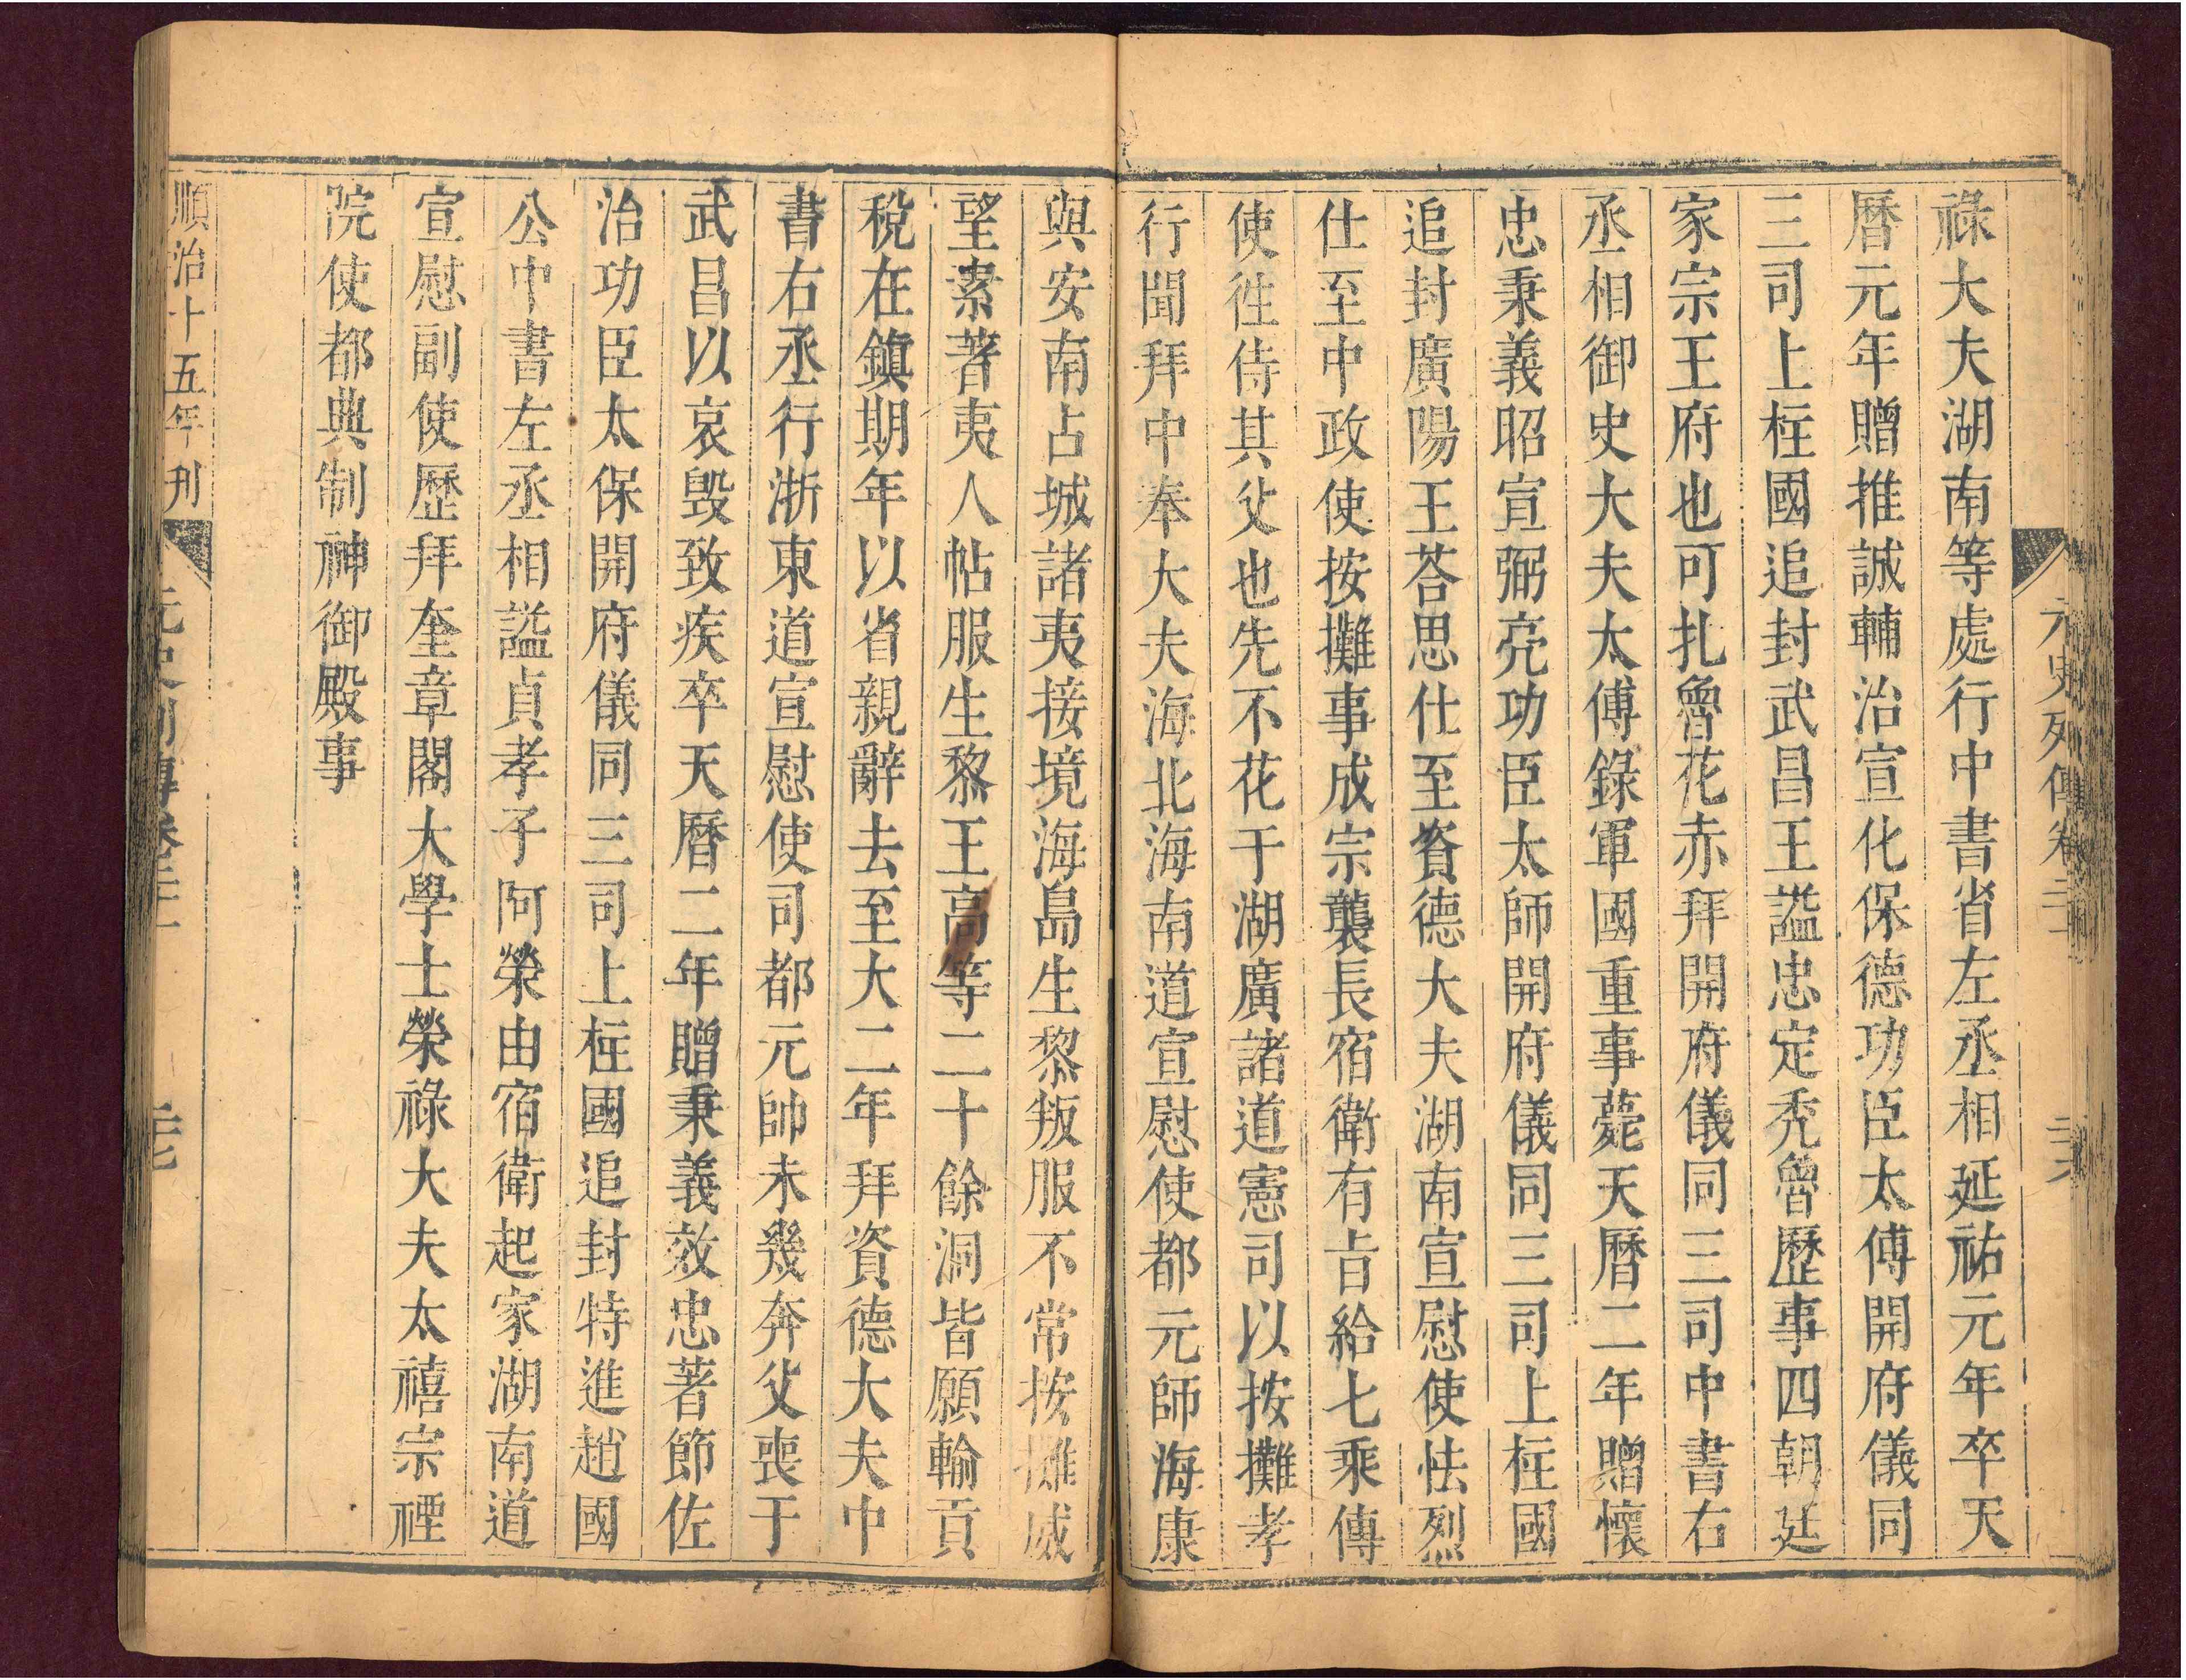 元史列傳卷二十一
三十六
祿大夫湖南等處行中書省左丞相延祐元年卒天
曆元年贈推誠輔治宣化保德功臣太傅開府儀同
三司上柱國追封武昌王諡忠定禿魯歷事四朝廷
家宗王府也可扎魯花赤拜開府儀同三司中書右
丞相御史大夫太傅錄軍國重事薨天曆二年贈懷
忠秉義昭宣弼亮功臣太師開府儀同三司上柱國
追封廣陽王荅思仕至資德大夫湖南宣慰使怯烈
仕至中政使按攤事成宗襲長宿衛有旨給七乘傳
使徃侍其父也先不花于湖廣諸道憲司以按攤孝
行聞拜中奉大夫海北海南道宣慰使都元師海康
與安南占城諸夷接境海島生黎叛服不常按攤威
望素著夷人帖服生黎王高等二十餘洞皆願輸貢
稅在鎮期年以省親辭去至大二年拜資德大夫中
書右丞行浙東道宣慰使司都元帥未幾奔父喪于
武昌以哀毀致疾卒天曆二年贈秉義效忠著節佐
治功臣太保開府儀同三司上柱國追封特進趙國
公中書左丞相諡貞孝子阿榮由宿衛起家湖南道
宣慰副使歷拜奎章閣大學士榮祿大夫太禧宗禋
院使都典制神御殿事
順治十五年刊
元史列傳卷二十一
三十七